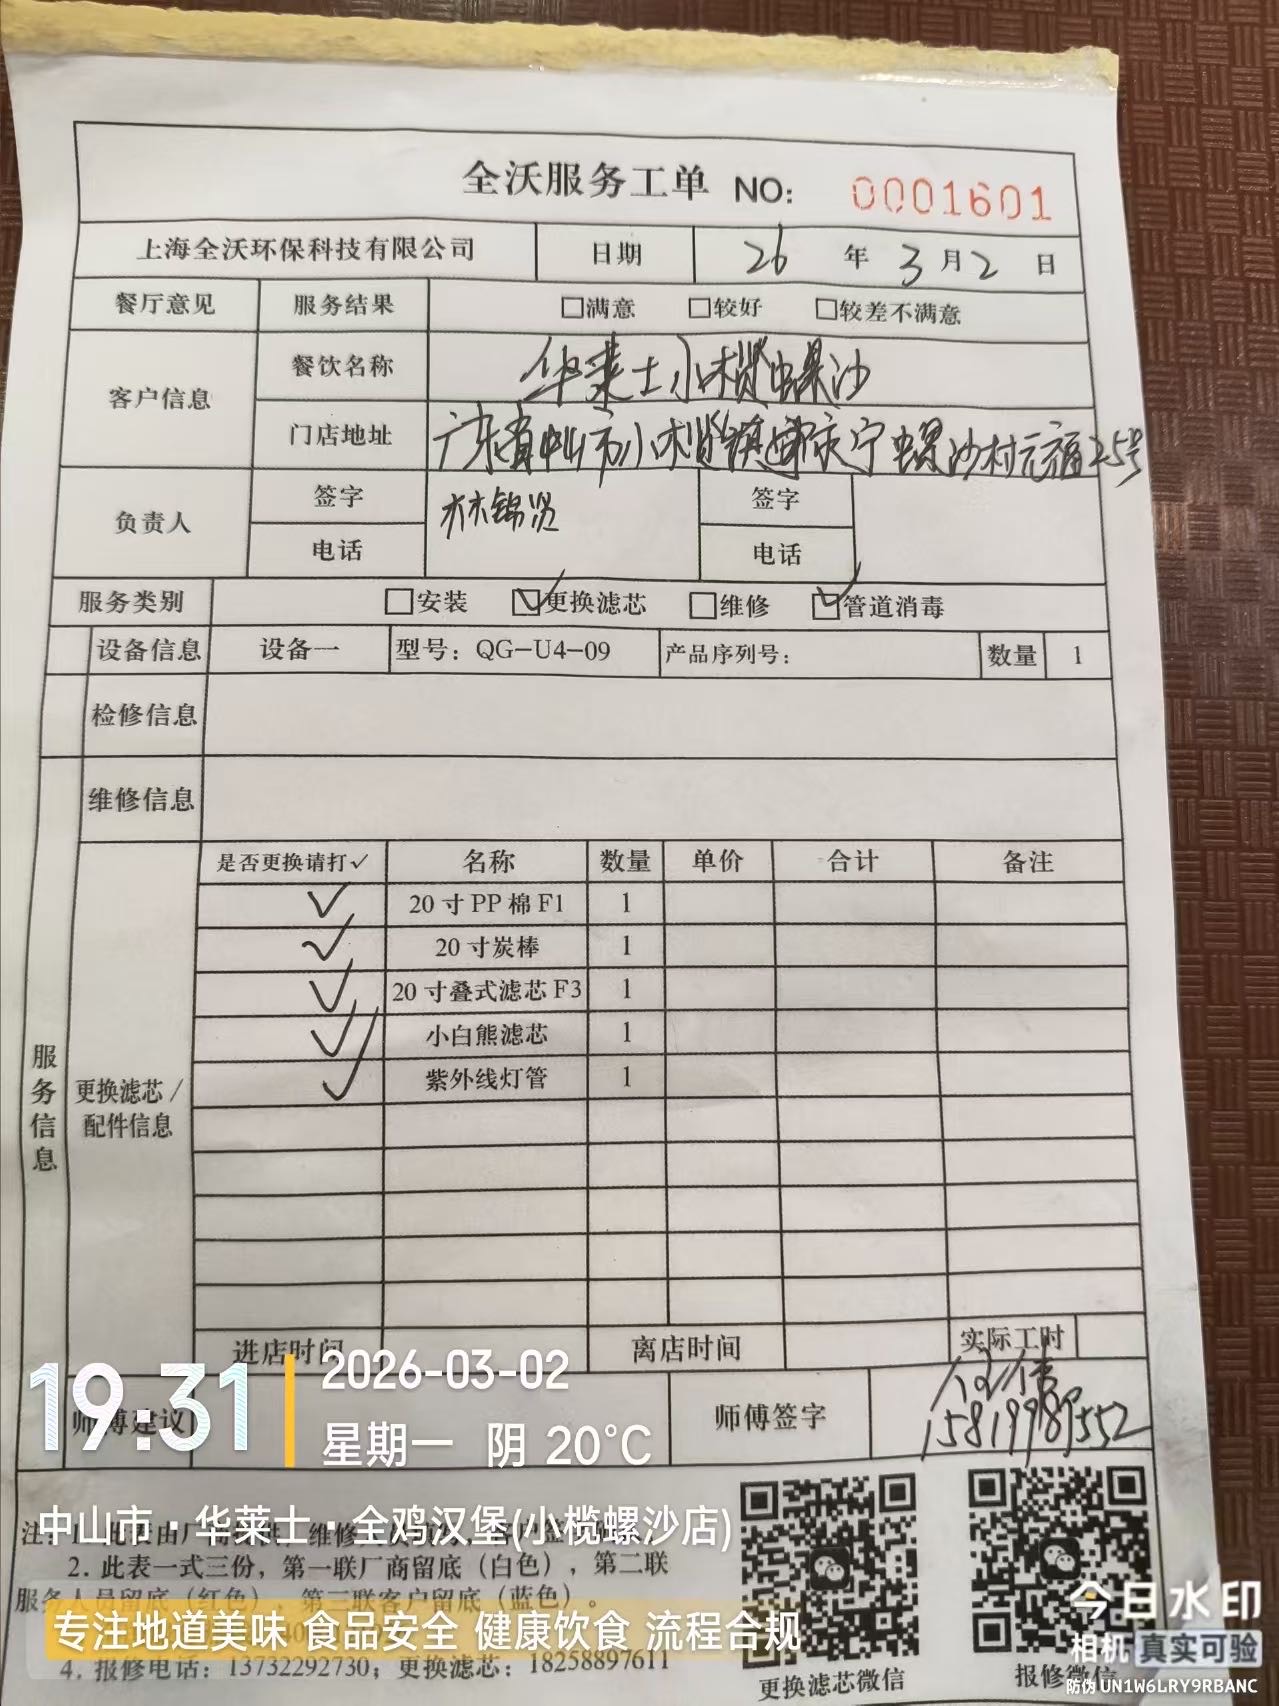 全沃服务工单 NO: 0001601
上海全沃环保科技有限公司 日期 26 年 3 月 2 日
餐厅意见 服务结果 □满意 □较好 □较差不满意
客户信息 餐饮名称 华莱士小榄螺沙
门店地址 广东省中山市小榄镇 宁螺沙村元福25号
负责人 签字 林锦贤 签字
电话 电话
服务类别 □安装 ☑更换滤芯 □维修 ☑管道消毒
设备信息 设备一 型号：QG-U4-09 产品序列号： 数量 1
检修信息
维修信息
服务信息
更换滤芯/配件信息
是否更换请打✓ 名称 数量 单价 合计 备注
✓ 20寸PP棉F1 1
✓ 20寸炭棒 1
✓ 20寸叠式滤芯F3 1
✓ 小白熊滤芯 1
✓ 紫外线灯管 1
进店时间 离店时间 实际工时
师傅建议 师傅签字
15819989552
19:31 2026-03-02
星期一 阴 20°C
中山市·华莱士·全鸡汉堡(小榄螺沙店)
注：1.
2. 此表一式三份，第一联厂商留底（白色），第二联
服务人员留底（红色），第三联客户留底（蓝色）。
专注地道美味 食品安全 健康饮食 流程合规
4. 报修电话：13732292730；更换滤芯：18258897611
更换滤芯微信 报修微信
今日水印
相机 真实可验
防伪 UN1W6LRY9RBANC